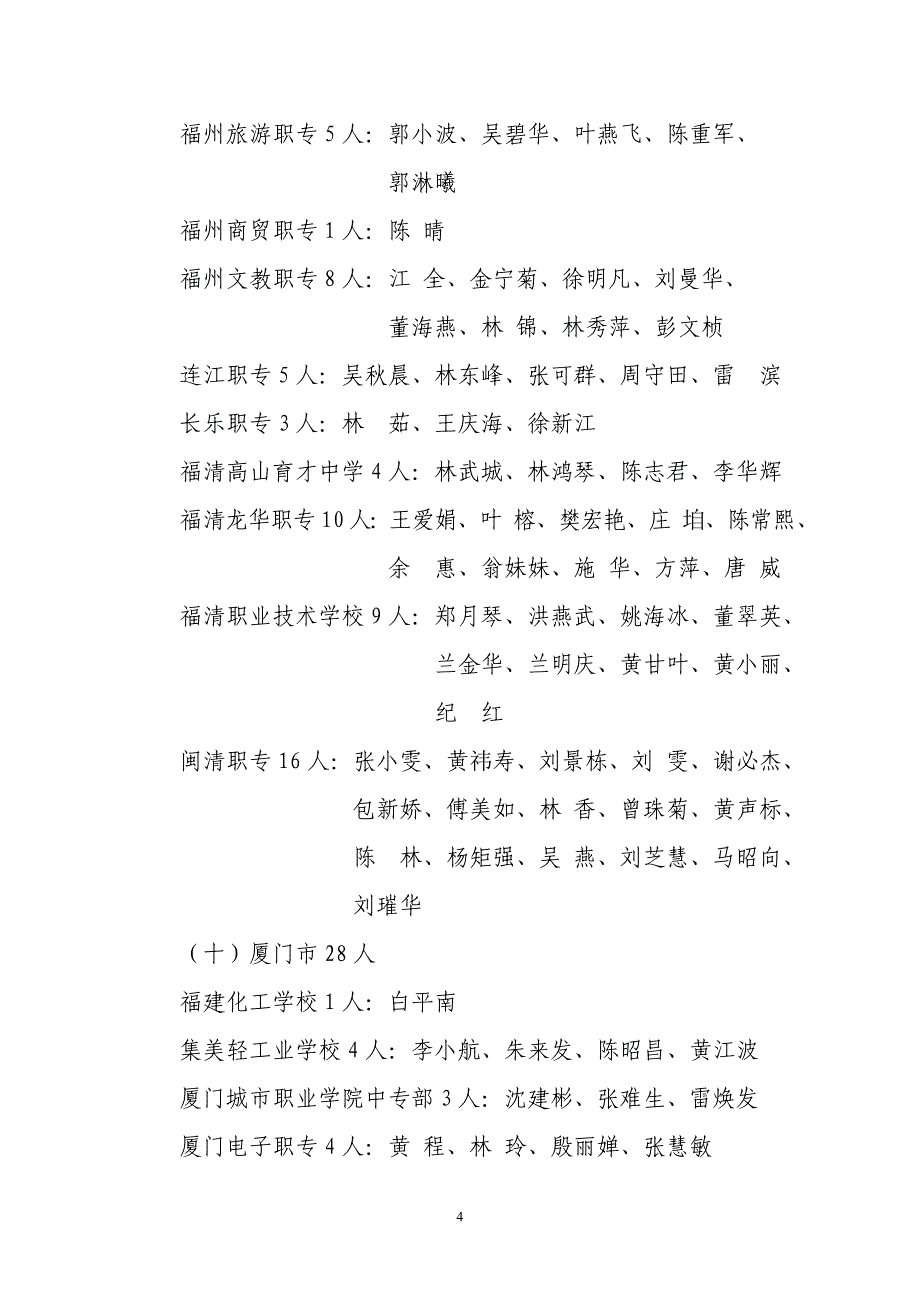 福州旅游职专5人：郭小波、吴碧华、叶燕飞、陈重军、
郭淋曦
福州商贸职专1人：陈 晴
福州文教职专8人：江 全、金宁菊、徐明凡、刘曼华、
董海燕、林 锦、林秀萍、彭文桢
连江职专5人：吴秋晨、林东峰、张可群、周守田、雷　滨
长乐职专3人：林　茹、王庆海、徐新江
福清高山育才中学4人：林武城、林鸿琴、陈志君、李华辉
福清龙华职专10人：王爱娟、叶 榕、樊宏艳、庄 垍、陈常熙、
余　惠、翁妹妹、施 华、方萍、唐 威
福清职业技术学校9人：郑月琴、洪燕武、姚海冰、董翠英、
兰金华、兰明庆、黄甘叶、黄小丽、
纪　红
闽清职专16人：张小雯、黄祎寿、刘景栋、刘 雯、谢必杰、
包新娇、傅美如、林 香、曾珠菊、黄声标、
陈　林、杨矩强、吴 燕、刘芝慧、马昭向、
刘璀华
（十）厦门市28人
福建化工学校1人：白平南
集美轻工业学校4人：李小航、朱来发、陈昭昌、黄江波
厦门城市职业学院中专部3人：沈建彬、张难生、雷焕发
厦门电子职专4人：黄 程、林 玲、殷丽婵、张慧敏
4